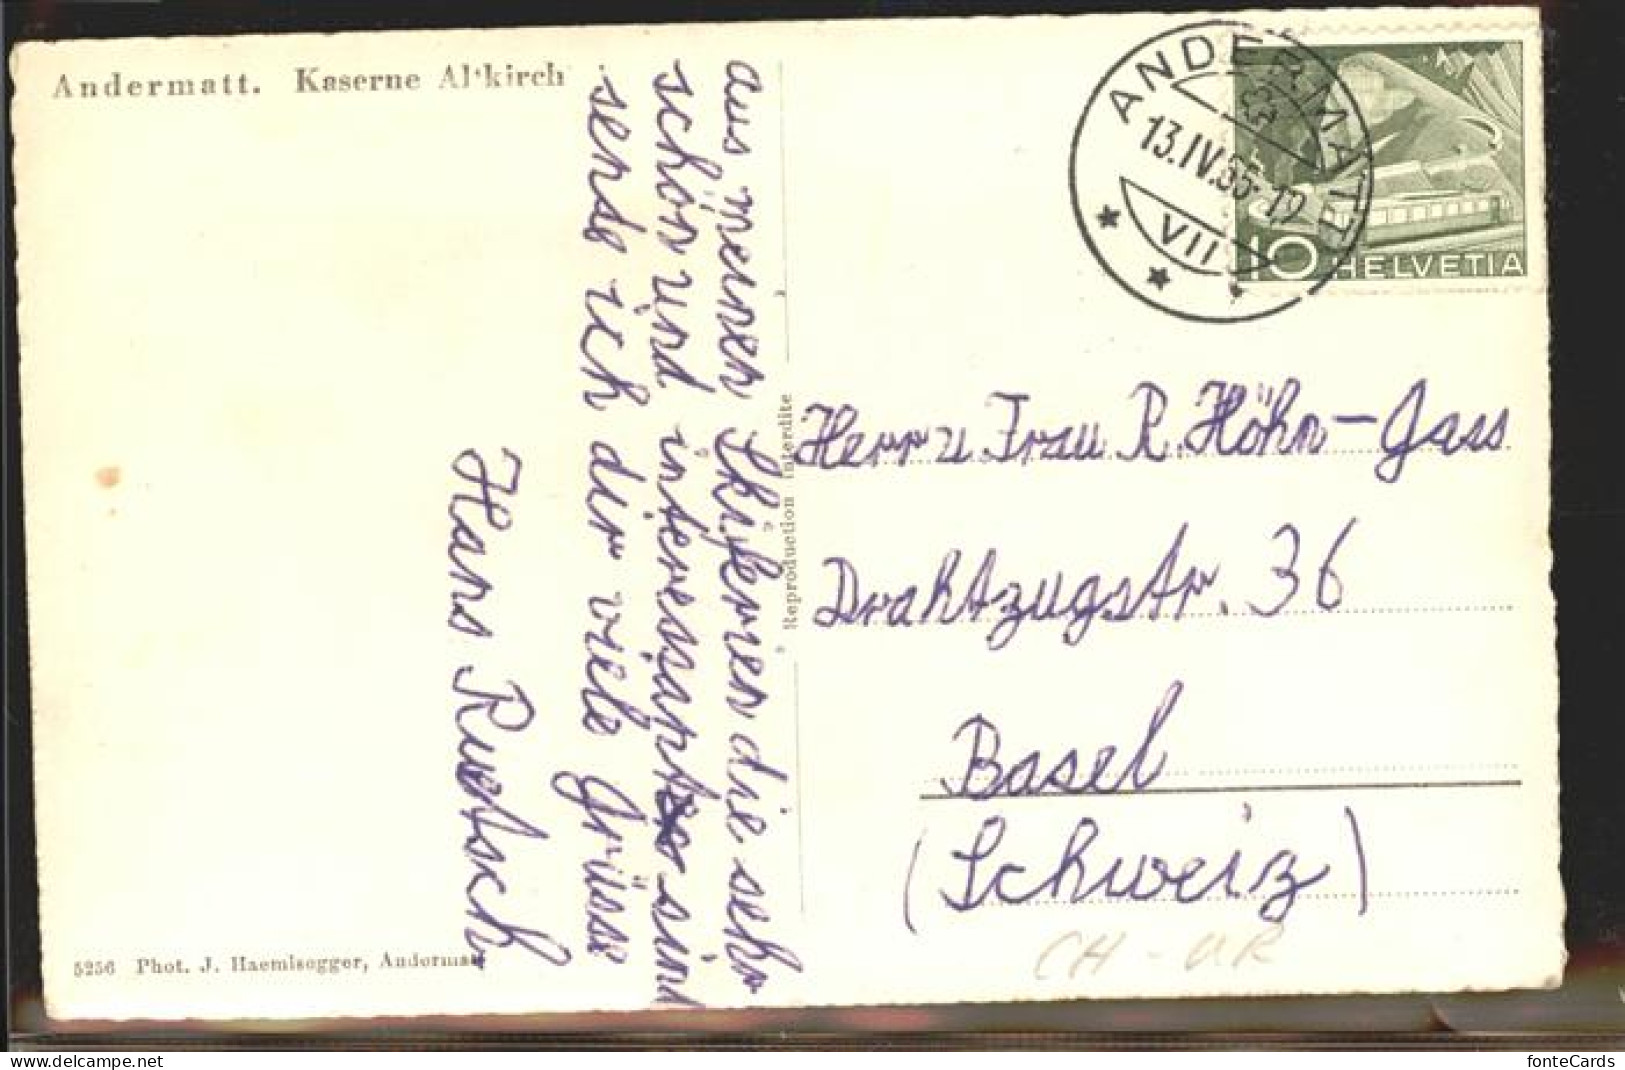 Andermatt. Kaserne Altkirch
aus meinen Skiferien die sehr
schön und interessant sind
sende ich dir viele Grüsse
Hans Ruetsch
5256 Phot. J. Haemisegger, Andermatt
Reproduction interdite
ANDERMATT
13.IV.65-12
VII
10 HELVETIA
Herr u. Frau R. Höhn-Gass
Drahtzugstr. 36
Basel
(Schweiz)
CH-UR
delcampe.net
fonteCards